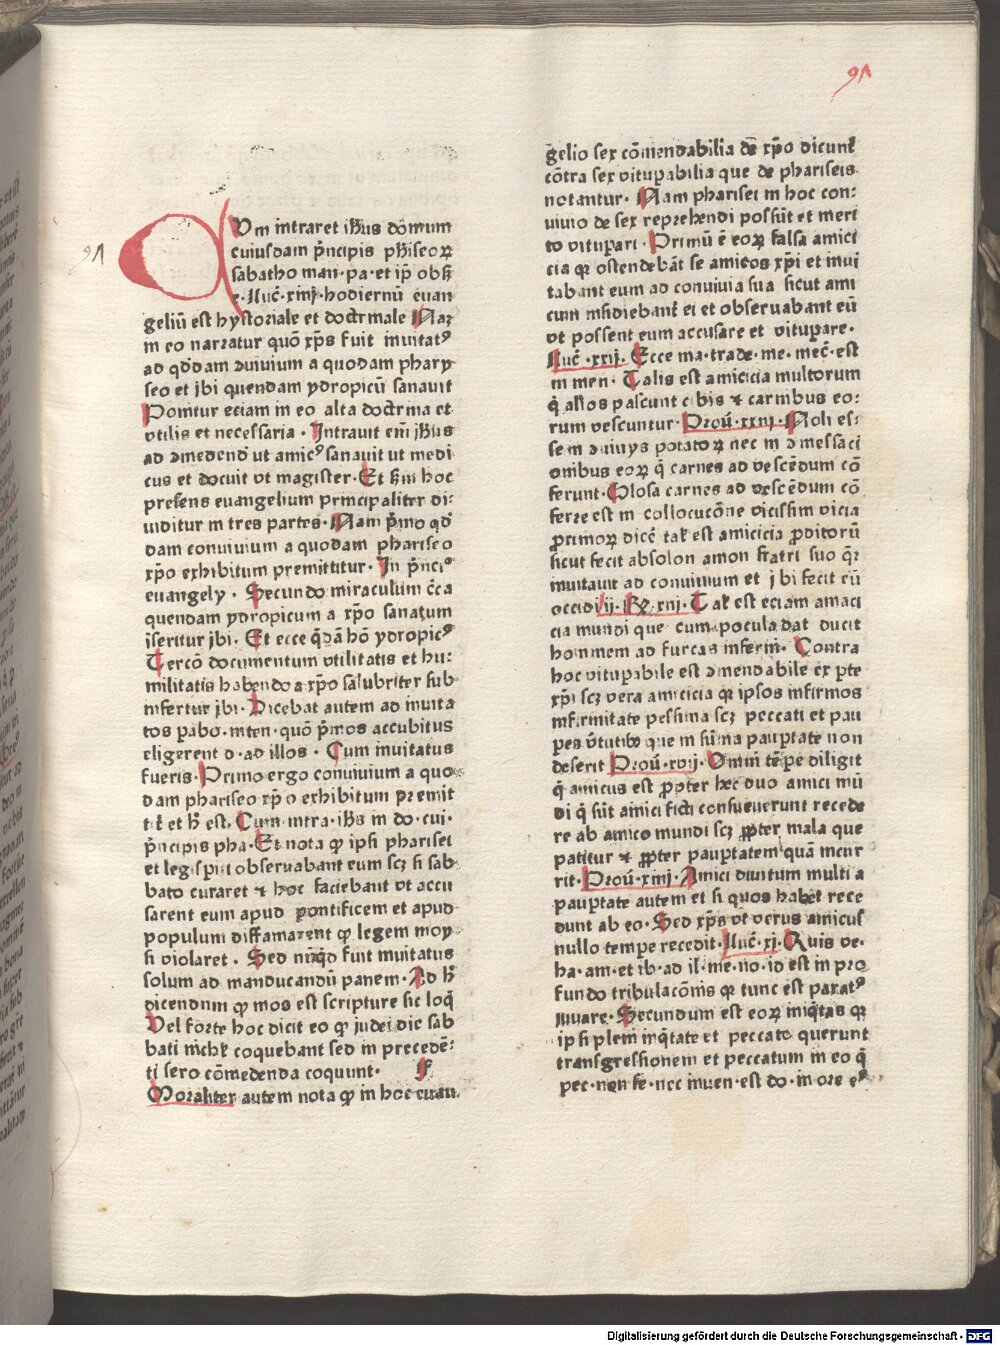 91
91
CVm intraret ihūs domum
cuiusdam p̄ncipis ph̄iseoꝝ
sabatho man·pa·et ip̄ obs̄
e·Luc̄·xiiij·hodiernū euan
geliū est hystoriale et doctrinale Naꝫ
in eo narratur quō xp̄s fuit inuitatꝰ
ad qd̄dam ↄuiuium a quodam phary
seo et jbi quendam ydropicū sanauit
Ponitur eciam in eo alta doctrina et
vtilis et necessaria · Intrauit em̄ jh̄us
ad ↄmedend̄ ut amicꝰ sanauit ut medi
cus et docuit vt magister·Et s̄m hoc
presens euangelium principaliter di:
uiditur in tres partes·Nam p̄mo qd̄
dam conuiuium a quodam phariseo
xp̄o exhibitum premittitur·In p̄nciº
euangely·Secundo miraculum c̄ca
quendam ydropicum a xp̄o sanatum
īseritur jbi·Et ecce q̄dā hō ydropicꝰ
Tercō documentum vtilitatis et hu:
militatis habendo a xp̄o salubriter sub
infertur jbi·Dicebat autem ad inuita
tos pabo·inten·quō p̄mos accubitus
eligerent d·ad illos·Cum inuitatus
fueris·Primo ergo conuiuium a quo
dam phariseo xp̄o exhibitum premit
tit̄ et h̄ est·Cum·intra·ih̄s in do·cui·
p̄ncipis pha·Et nota ꝙ ipsi pharisei
et legispiti obseruabant eum scꝫ si sab
bato curaret ⁊ hoc faciebant vt accu
sarent eum apud pontificem et apud
populum diffamarent ꝙ legem moy
si violaret·Sed nūqd̄ fuit inuitatus
solum ad manducandū panem·Ad h̄
dicendum ꝙ mos est scripture sic loq̄
Vel forte hoc dicit eo ꝙ judei die sab
bati nichil coquebant sed in precedē:
ti sero cōmedenda coquunt·
Moraliter autem nota ꝙ in hoc euan
gelio sex cōmendabilia de xp̄o dicunt̄
cōtra sex vitupabilia que de phariseis
notantur·Nam pharisei in hoc con:
uiuio de sex reprehendi possūt et meri
to vitupari·Primū ē eoꝝ falsa amici
cia ꝙ ostendebāt se amicos xp̄i et inui
tabant eum ad conuiuia sua sicut ami
cum insidiebant̄ ei et obseruabant eū
vt possent eum accusare et vitupare·
Luc̄·xxij·Ecce ma·trade·me·mec̄·est
in men·Talis est amicicia multorum
q̄ alios pascunt cibis ⁊ carnibus eo:
rum vescuntur·Prou̇·xxiij·Noli es:
se in ↄuiuys potatoꝝ nec in ↄmessaci
onibus eoꝝ q̄ carnes ad vescēdum cō
ferunt·Glosa carnes ad vescēdum cō
ferre est in collocucōne vicissim vicia
primoꝝ dicē tal̄ est amicicia proditorū
sicut fecit absolon amon fratri suo q̄:
inuitauit ad conuiuium et jbi fecit eū
occidi ij·Rꝝ·xiij·Tal̄ est eciam amaci
cia mundi que cum pocula dat ducit
hominem ad furcas inferni·Contra
hoc vitupabile est ↄmendabile ex pte
xp̄i scꝫ vera amicicia ꝙ ipsos infirmos
infirmitate pessima scꝫ peccati et pau
pes v̄tutibꝫ que in sūma pauptate non
deserit Prou̇·xvij·Omni tēpe diligit
q̄ amicus est propter hec duo amici mū
di q̄ sūt amici ficti consueuerunt recede
re ab amico mundi scꝫ ꝓpter mala que
patitur ⁊ ꝓpter pauptatem quā incur
rit·Prou̇·xiiij·Amici diuitum multi a
pauptate autem et si quos habet rece
dunt ab eo·Sed xp̄s vt verus amicus
nullo tempe recedit·Luc̄·xj·Quis ve·
ha·am·et ib·ad il·me·no·id est in pro
fundo tribulacōnis ꝙ tunc est paratꝰ
iuuare·Secundum est eoꝝ iniq̄tas ꝙ
ipsi pleni inq̄tate et peccato querunt
transgressionem et peccatum in eo q̄
pec·non fe·nec inuen·est do·in ore eꝰ
Digitalisierung gefördert durch die Deutsche Forschungsgemeinschaft - DFG